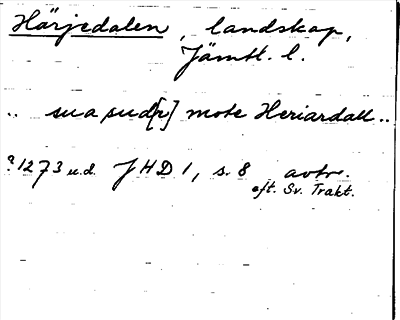 Härjedalen, landskap,
Jämtl. l.
.. sua sud[r] mote Heriardall ..
?1273 u.d. JHD 1, s. 8 avtr.
eft. Sv. Trakt.